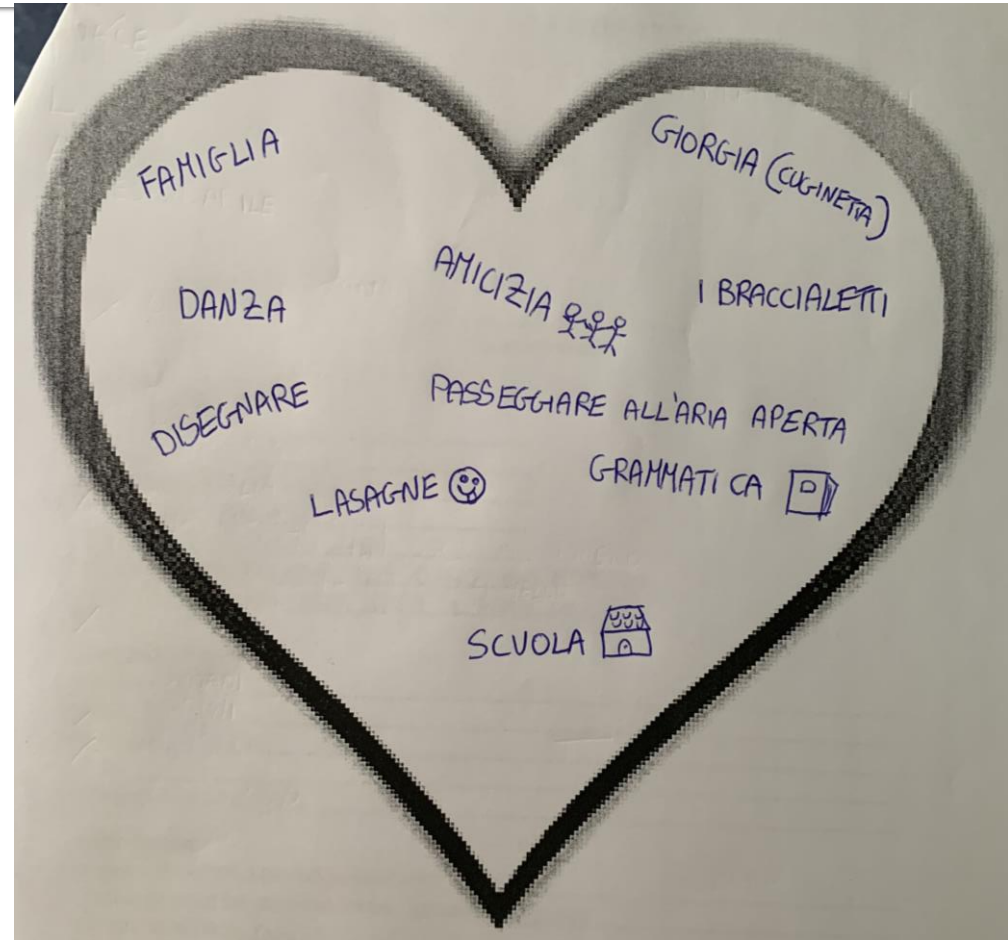 FAMIGLIA
GIORGIA (CUGINETTA)
DANZA
AMICIZIA
I BRACCIALETTI
DISEGNARE
PASSEGGIARE ALL'ARIA APERTA
LASAGNE
GRAMMATICA
SCUOLA